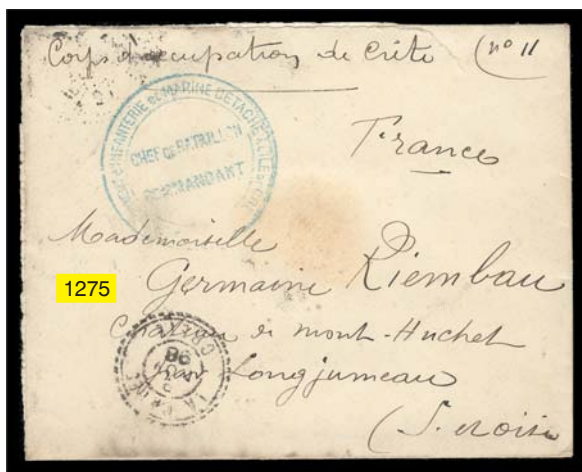 Corps d'occupation de Crète (nº 11
D'INFANTERIE DE MARINE DÉTACHÉ
CHEF DE BATAILLON
COMMANDANT
France
Mademoiselle
1275
Germaine Riembau
Château de mont-Huchet
par Longjumeau
(S. et oise
LA CANÉE
98
CRETE